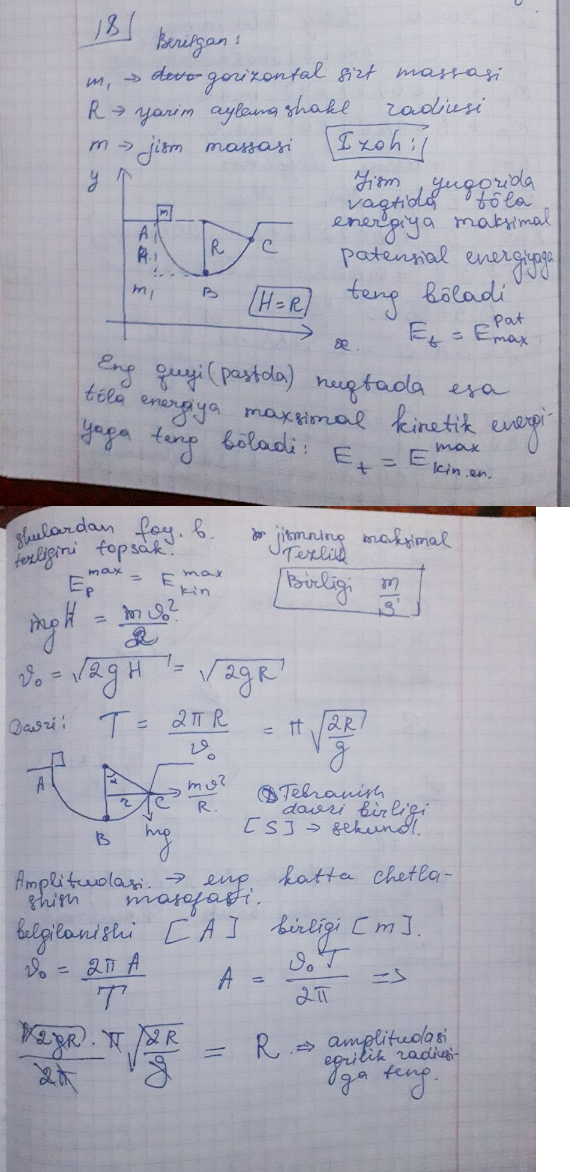 181
Berilgan:
m₁ → gorizontal sirt massasi
R → yarim aylana shakl radiusi
m → jism massasi
Izoh:
y
m
A
R
C
m₁
B
H=R
x
Jism yuqorida
vaqtida tôla
energiya maksimal
patensial energiyaga
teng bôladi
E_t = E_max^pat
Eng quyi (pastda) nuqtada esa
tôla energiya maxsimal kinetik energi-
yaga teng bôladi: E_t = E_kin.en.^max
shulardan foy. b.
tezligini topsak.
jismning maksimal
Tezlik
Birligi m/s
E_p^max = E_kin^max
mgH = mϑ₀²/2
ϑ₀ = √2gH = √2gR
Davri: T = 2πR/ϑ₀ = π√(2R/g)
A
B
α
r
C
mϑ²/R
mg
Tebranish
davri birligi
[S] → sekund.
Amplitudasi → eng katta chetla-
shish masofasi.
belgilanishi [A] birligi [m].
ϑ₀ = 2πA/T A = ϑ₀T/2π =>
√2gR · π√(2R/g) / 2π = R => amplitudasi
egrilik radiusi-
ga teng.